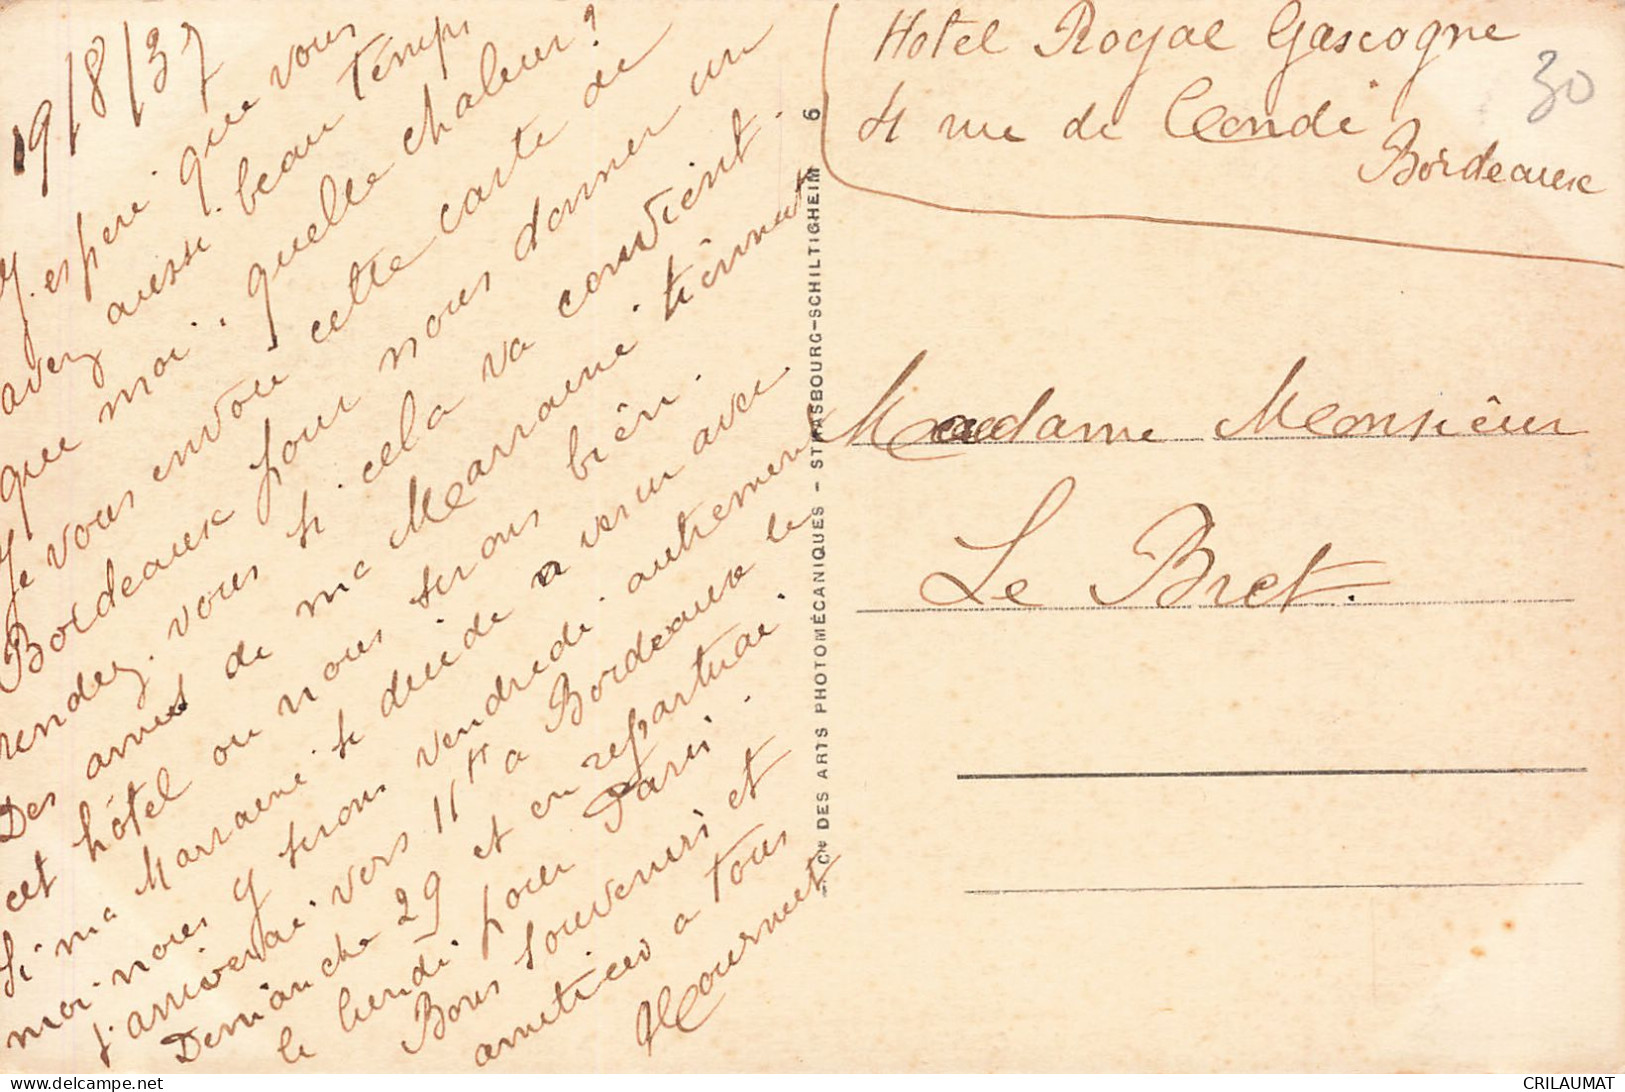 19/8/37
J. espere que vous
avez aussi beau temps
que moi, quelle chaleur?
Je vous envoie cette carte de
Bordeaux pour nous donner un
rendez-vous si cela va convient.
Des amis de ma Marraine tiennent
cet hôtel ou nous serons bien.
Si ma Marraine se decide a venir avec
moi nous y serons vendredi autrement
j'arriverai vers 11H a Bordeaux le
Dimanche 29 et en repartirai
le lundi pour Paris.
Bons souvenirs et
amitiés a tous
Hotel Royal Gascogne
4 rue de Condé
Bordeaux
30
Madame Monsieur
Le Bret.
Cie DES ARTS PHOTOMÉCANIQUES - STRASBOURG-SCHILTIGHEIM 6
CRILAUMAT